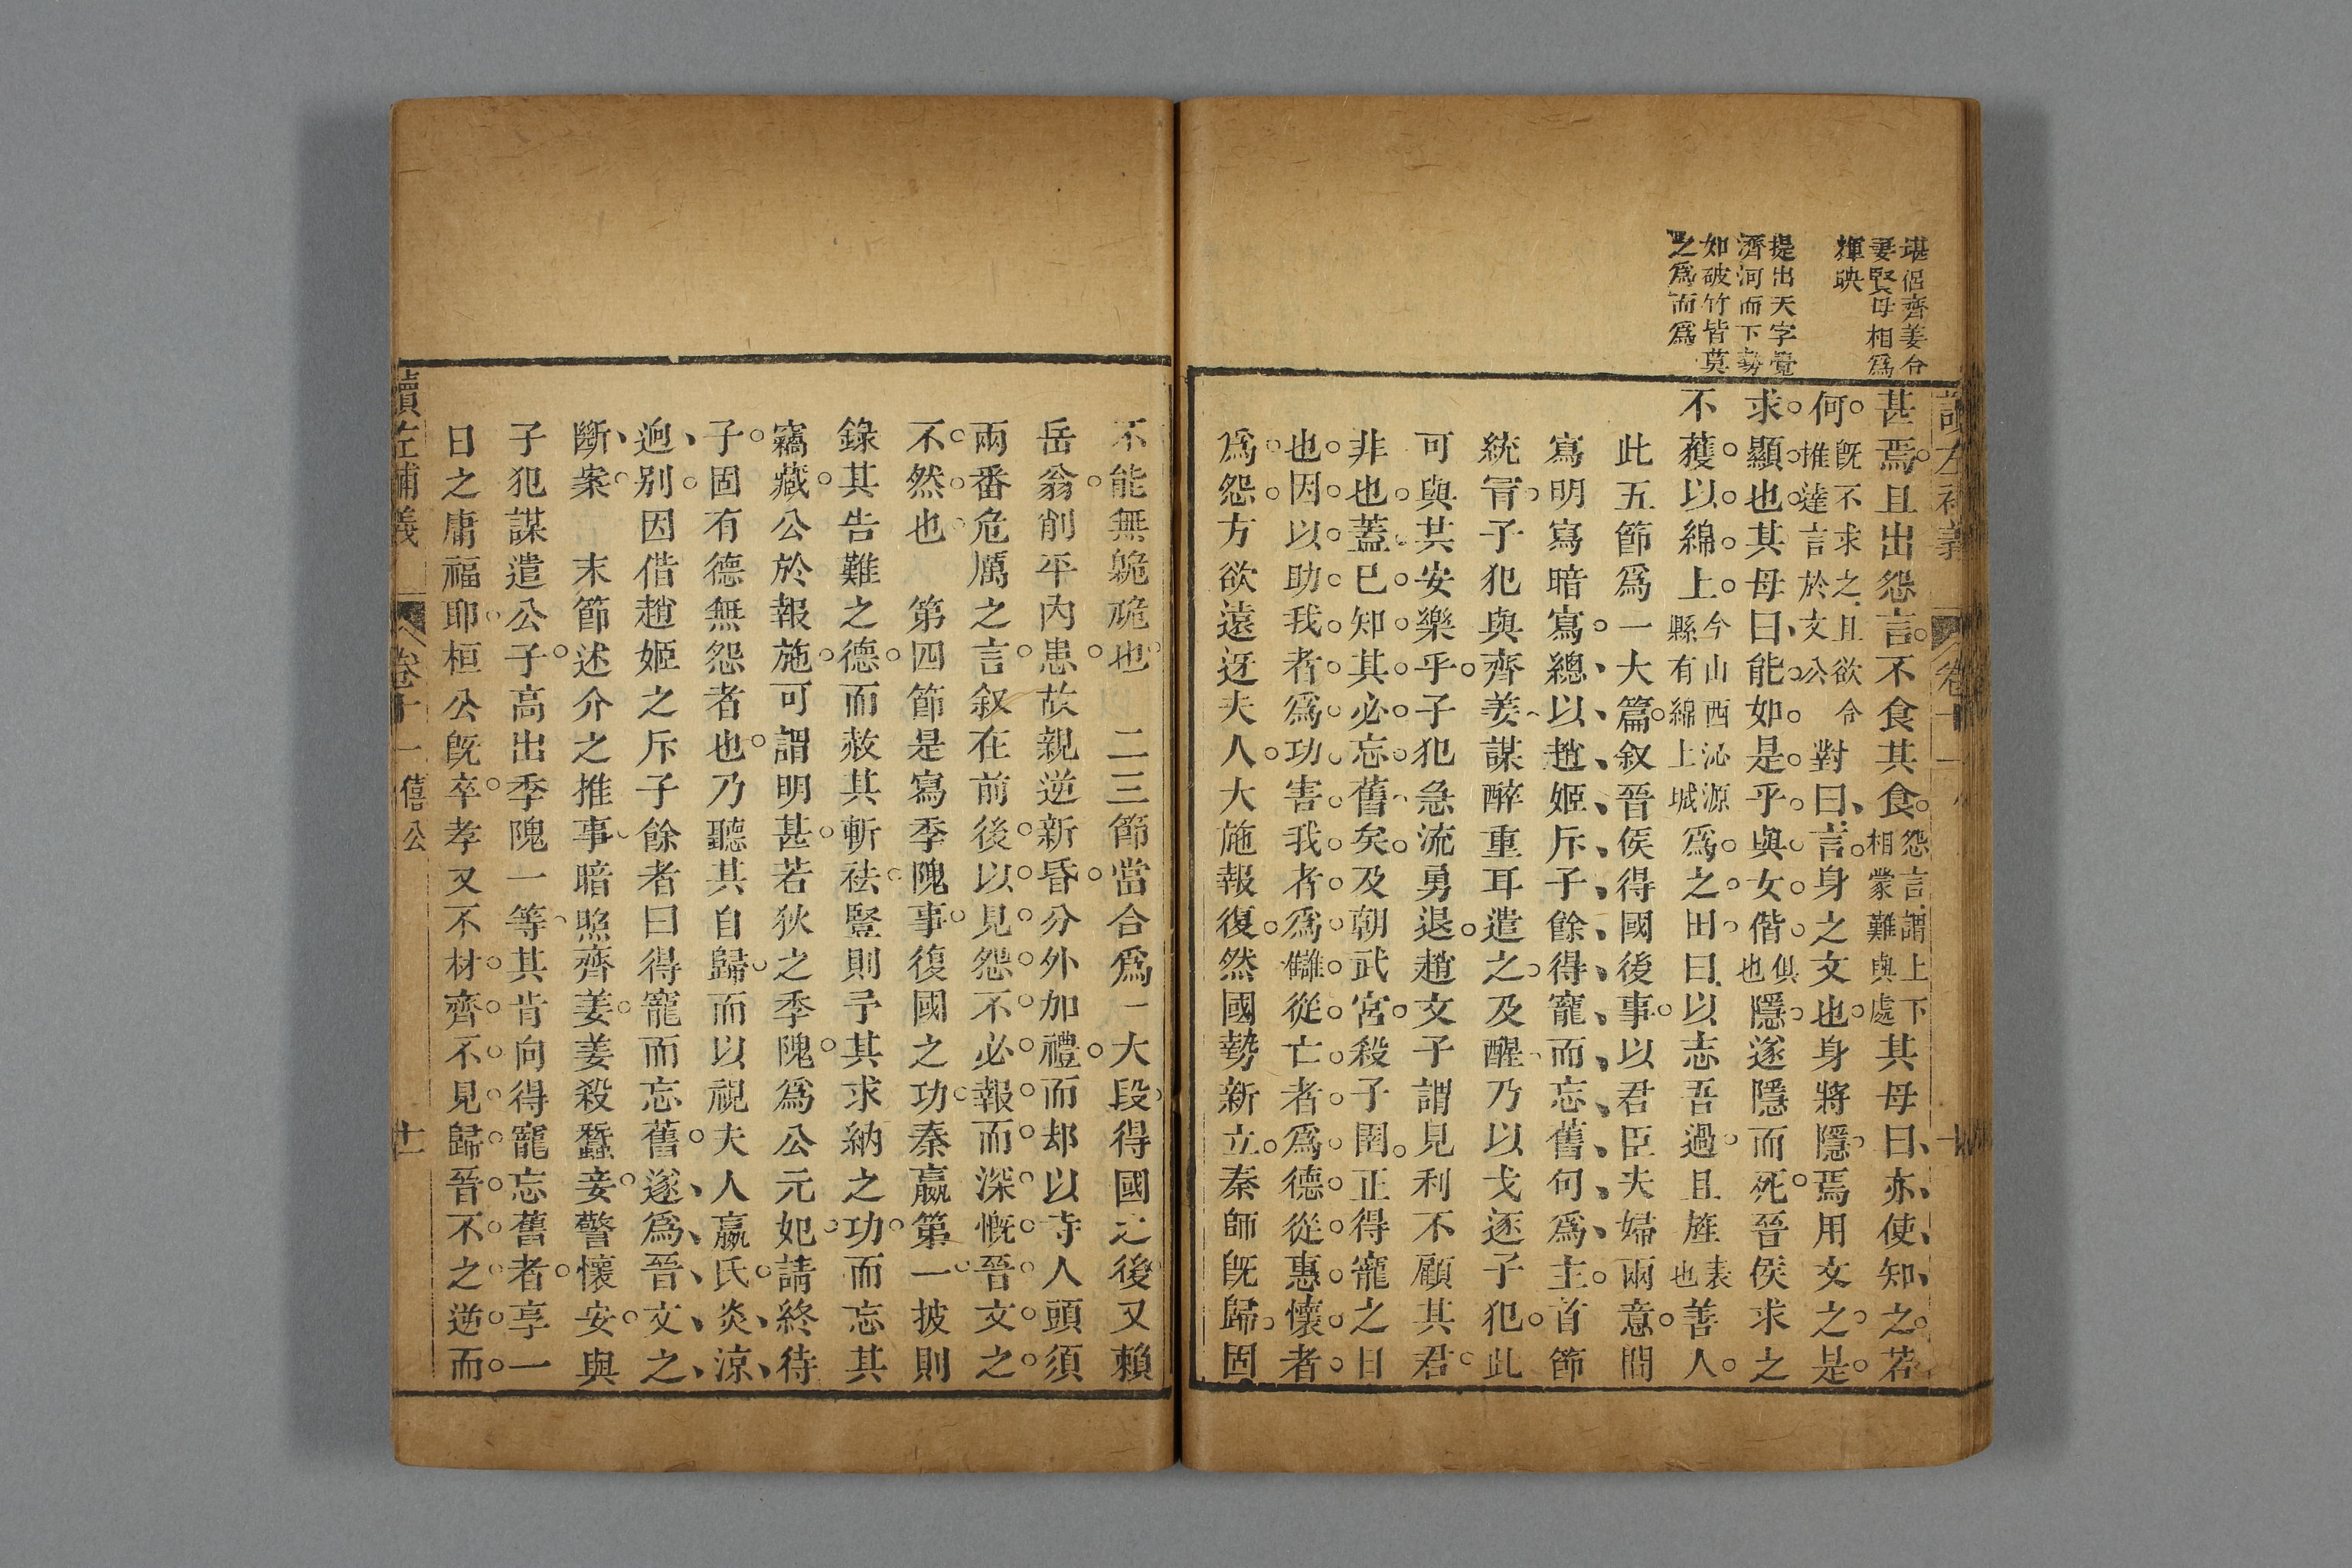 堪侶齊姜合
妻賢母相爲
輝映
提出天字覺
濟河而下勢
如破竹皆莫
之爲而爲
甚焉且出怨言不食其食怨言謂上下相蒙難與處其母曰亦使知之若
何既不求之且欲令推達言於文公對曰言身之文也身將隱焉用文之是
求顯也其母曰能如是乎與女偕俱也隱遂隱而死晉侯求之
不獲以綿上今山西沁源縣有綿上城爲之田曰以志吾過且旌表也善人
此五節爲一大篇叙晉侯得國後事以君臣夫婦兩意間
寫明寫暗寫總以趙姬斥子餘得寵而忘舊句爲主首節
統冐子犯與齊姜謀醉重耳遣之及醒乃以戈逐子犯此
可與共安樂乎子犯急流勇退趙文子謂見利不顧其君
非也蓋已知其必忘舊矣及朝武宮殺子圉正得寵之日
也因以助我者爲功害我者爲讎從亡者爲德從惠懷者
爲怨方欲遠迓夫人大施報復然國勢新立秦師旣歸固
不能無臲卼也　二三節當合爲一大段得國之後又賴
岳翁削平內患故親逆新昏分外加禮而却以寺人頭須
兩番危厲之言叙在前後以見怨不必報而深慨晉文之
不然也　第四節是寫季隗事復國之功秦嬴第一披則
錄其告難之德而赦其斬袪豎則予其求納之功而忘其
竊藏公於報施可謂明甚若狄之季隗爲公元妃請終待
子固有德無怨者也乃聽其自歸而以視夫人嬴氏炎涼
逈别因借趙姬之斥子餘者曰得寵而忘舊遂爲晉文之
斷案　末節述介之推事暗照齊姜姜殺蠶妾警懷安與
子犯謀遣公子高出季隗一等其肯向得寵忘舊者享一
日之庸福耶桓公旣卒孝又不材齊不見歸晉不之逆而
讀左補義　卷十一　僖公　十一